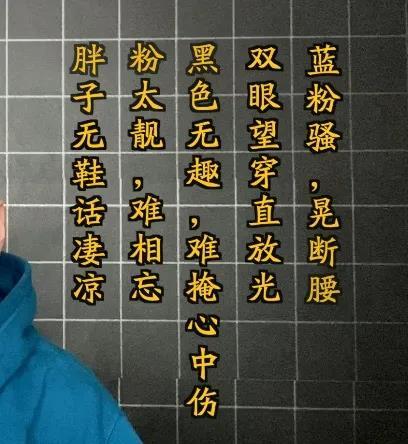 蓝粉骚，晃断腰
双眼望穿直放光
黑色无趣，难掩心中伤
粉太靓，难相忘
胖子无鞋话凄凉